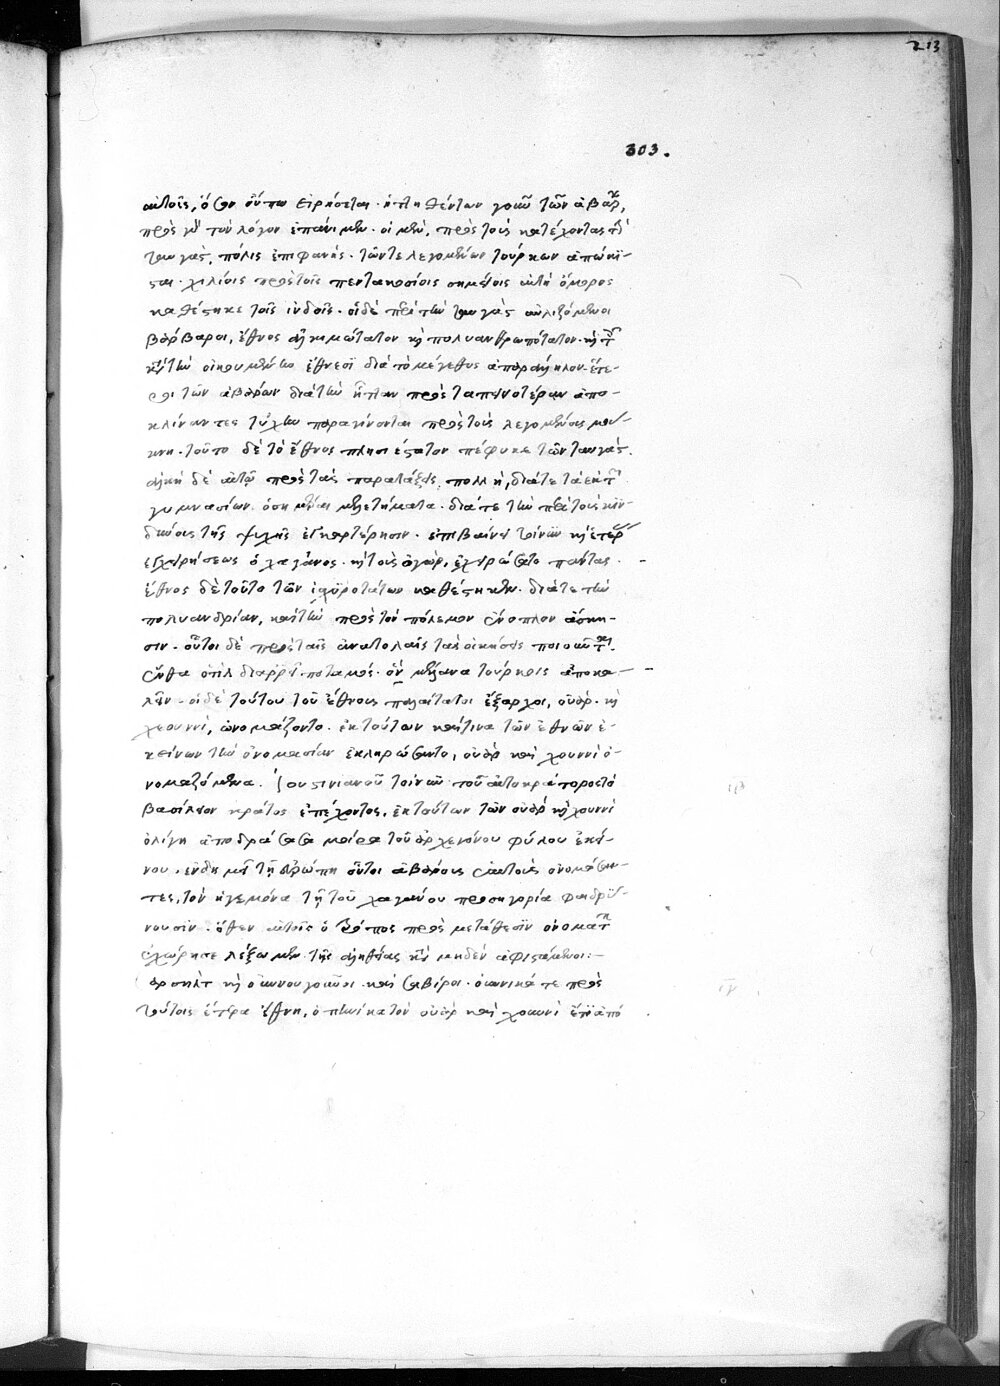 213
303.
αὐτοῖς, ὅσον οὔπω εἰρήσεται · ἡττηθέντων γοῦν τῶν ἀβάρ,
πρὸς γὰρ τὸν λόγον ἐπάνιμεν · οἱ μὲν, πρὸς τοὺς κατέχοντας τὴν
ταυγάς, πόλις ἐπιφανής · τῶντε λεγομένων τούρκων ἀπώκι-
σται · χιλίοις πρὸς τοῖς πεντακοσίοις σημείοις αὐτὴ ὅμορος
καθέστηκε τοῖς ἰνδοῖς · οἱ δὲ περὶ τὴν ταυγὰς αὐλιζόμενοι
βάρβαροι, ἔθνος ἀλκιμώτατον καὶ πολυανθρωπότατον · καὶ τοῖς
κατὰ τὴν οἰκουμένην ἔθνεσι διὰ τὸ μέγεθος ἀπαράλληλον · ἕτε-
ροι τῶν ἀβάρων διὰ τὴν ἧτταν πρὸς ταπεινοτέραν ἀπο-
κλίναντες τύχην παραγίνονται πρὸς τοὺς λεγομένους μου-
κρι · τοῦτο δὲ τὸ ἔθνος πλησιέστατον πέφυκε τῶν ταυγάς.
ἀλκὴ δὲ αὐτῷ πρὸς τὰς παρατάξεις πολλὴ, διάτε τὰ ἐκ τῶν
γυμνασίων ὁσημέραι μελετήματα · διάτε τὴν περὶ τοὺς κιν-
δύνους τῆς ψυχῆς ἐγκαρτέρησιν · ἐπιβαίνει τοίνυν καὶ ἑτέρας
ἐγχειρήσεως ὁ χαγάνος · καὶ τοὺς ὀγὼρ, ἐχειρώσατο πάντας · -
ἔθνος δὲ τοῦτο τῶν ἰσχυροτάτων καθέστηκεν · διάτε τὴν
πολυανδρίαν, καὶ τὴν πρὸς τὸν πόλεμον ἔνοπλον ἄσκη-
σιν · οὗτοι δὲ πρὸς ταῖς ἀνατολαῖς τὰς οἰκήσεις ποιοῦνται.
ἔνθα ὁ τὶλ διαρρεῖ ποταμός · ὃν μέλανα τούρκοις ἀποκα-
λεῖν · οἱ δὲ τούτου τοῦ ἔθνους παλαίτατοι ἔξαρχοι, οὐὰρ · καὶ
χεουννὶ, ὠνομάζοντο · ἐκ τούτων καί τινα τῶν ἐθνῶν ἐ-
κείνων τὴν ὀνομασίαν ἐκληρώσαντο, οὐὰρ καὶ χουννὶ ὀ-
νομαζόμενα. Ἰουστινιανοῦ τοίνυν τοῦ αὐτοκράτορος τὸ
βασίλειον κράτος ἐπέχοντος, ἐκ τούτων τῶν οὐὰρ καὶ χουννὶ
ὀλίγη ἀποδράσασα μοῖρα τοῦ ἀρχεγόνου φύλου ἐκεί-
νου, ἐνδημεῖ τῇ εὐρώπῃ οὗτοι ἀβάρους ἑαυτοὺς ὀνομάσαν-
τες, τὸν ἡγεμόνα τῇ τοῦ χαγάνου προσηγορίᾳ φαιδρύ-
νουσιν · ὅθεν αὐτοῖς ὁ τρόπος πρὸς μετάθεσιν ὀνομάτων
ἐχώρησε λέξωμεν τῆς ἀληθείας κατὰ μηδὲν ἀφιστάμενοι: -
βαρσὴλτ καὶ ὀυννουγοῦροι · καὶ σαβίροι · οὐννικά τε πρὸς
τούτοις ἕτερα ἔθνη, ὁπηνίκα τὸν οὐὰρ καὶ χουννὶ ἔτι ἀπό